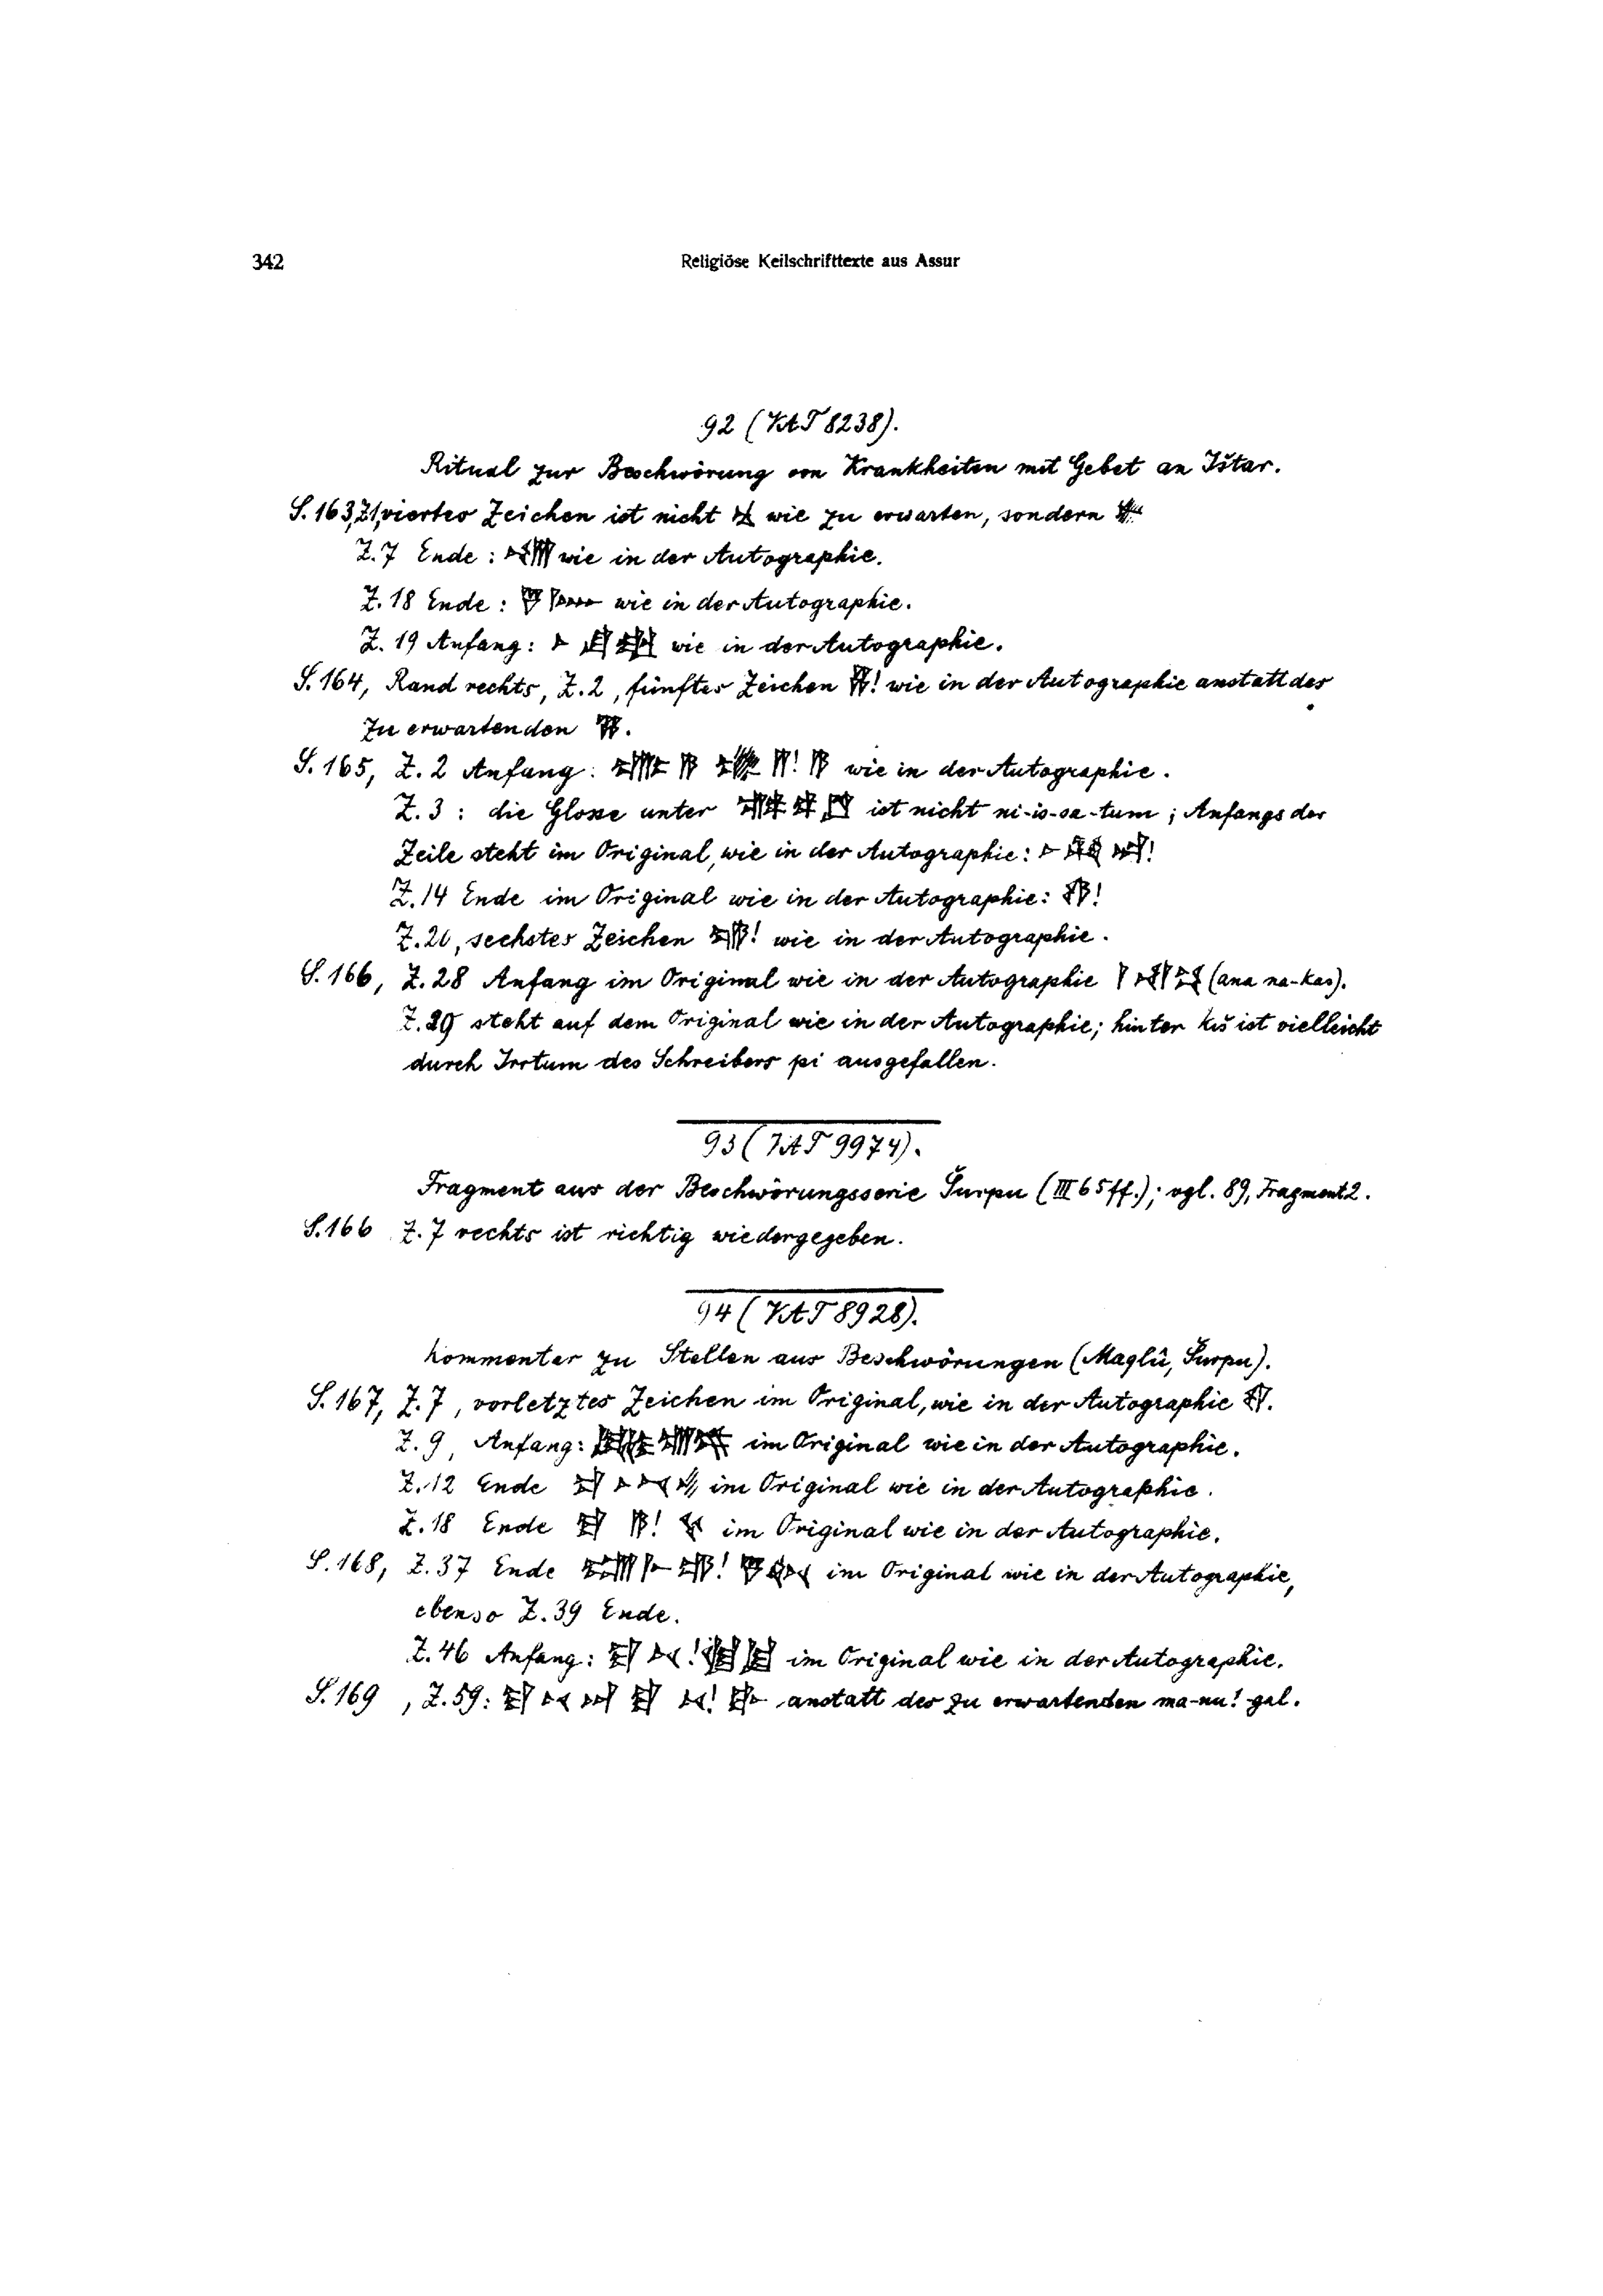 342 Religiöse Keilschrifttexte aus Assur
92 (VAT 8238).
Ritual zur Beschwörung von Krankheiten mit Gebet an Ištar.
S. 163, Z1, viertes Zeichen ist nicht wie zu erwarten, sondern
Z. 7 Ende: wie in der Autographie.
Z. 18 Ende: wie in der Autographie.
Z. 19 Anfang: wie in der Autographie.
S. 164, Rand rechts, Z. 2, fünftes Zeichen ! wie in der Autographie anstatt des
zu erwartenden .
S. 165, Z. 2 Anfang: ! wie in der Autographie.
Z. 3 : die Glosse unter ist nicht ni-is-sa-tum ; Anfangs der
Zeile steht im Original, wie in der Autographie: !
Z. 14 Ende im Original wie in der Autographie: !
Z. 20, sechstes Zeichen ! wie in der Autographie.
S. 166, Z. 28 Anfang im Original wie in der Autographie (ana na-kas).
Z. 29 steht auf dem Original wie in der Autographie; hinter kiš ist vielleicht
durch Irrtum des Schreibers pi ausgefallen.
93 (VAT 9974).
Fragment aus der Beschwörungsserie Šurpu (III 65 ff.); vgl. 89, Fragment 2.
S. 166 Z. 7 rechts ist richtig wiedergegeben.
94 (VAT 8928).
Kommentar zu Stellen aus Beschwörungen (Maglû, Šurpu).
S. 167, Z. 7, vorletztes Zeichen im Original, wie in der Autographie .
Z. 9, Anfang: im Original wie in der Autographie.
Z. 12 Ende im Original wie in der Autographie.
Z. 18 Ende ! im Original wie in der Autographie.
S. 168, Z. 37 Ende ! im Original wie in der Autographie,
ebenso Z. 39 Ende.
Z. 46 Anfang: ! im Original wie in der Autographie.
S. 169, Z. 59: ! anstatt des zu erwartenden ma-nu! gal.